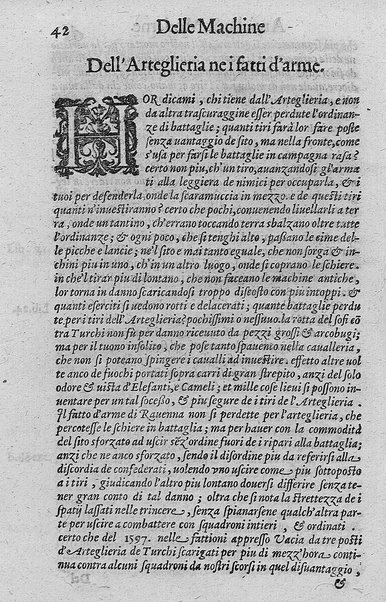 42
Delle Machine
Dell'Arteglieria ne i fatti d'arme.
HOR dicami, chi tiene dall'Arteglieria, e non
da altra trascuraggine esser perdute l'ordinan-
ze di battaglie; quanti tiri farà lor fare poste
senza uantaggio de sito, ma nella fronte, come
s'usa per farsi le battaglie in campagna rasa?
certo non piu, ch'un tiro, auanzandosi gl'arma
ti alla leggiera de nimici per occuparla, & i
tuoi per defenderla, onde la scaramuccia in mezzo. e de questi tiri
quanti n'inuestiranno? certo che pochi, conuenendo liuellarli a ter
ra, onde un tantino, ch'errano toccando terra sbalzano oltre tatte
l'ordinanze; & ogni poco, che si tenghi alto, passano le cime del-
le picche e lancie; ne'l sito e mai tanto eguale, che non sorga & in-
chini piu in uno, ch'in un altro luogo, onde si coprano le schiere.
in che'l tirar piu di lontano, che non faceano le machine antiche,
lor torna in danno caricandosi troppo discosto con piu intoppi: &
quanti eserciti si uedono rotti e delacerati; quante battaglie perdu
te per i tiri dell'Arteglieria? pochissimi o nessuno. la rotta del sofi cō
tra Turchi non fu per danno riceuuto da pezzi grossi & arcobugi;
ma per il tuono insolito, che pose tanto spauento nella caualleria,
che non si poteano spingere i caualli ad inuestire. effetto altre uol
te anco de fuochi portati sopra carri di gran strepito, anzi del solo
odore & uista d'Elefanti, e Cameli; et mille cose lieui si possono in-
uentare per un tal soceßo, & piu segure de i tiri de l'Arteglieria.
Il fatto d'arme di Rauenna non si perdette per l'arteglieria, che
percotesse le schiere in battaglia; ma per hauer con la commodità
del sito sforzato ad uscir sēz'ordine fuori de i ripari alla battaglia;
anzi che ne anco sforzato, sendo il disordine piu da referirsi alla
discordia de confederati, uolendo uno uscire come piu sottoposto
a i tiri, giudicando l'altro piu lontano douersi differire senza te-
ner gran conto di tal danno; oltra che si nota la strettezza de i
spatij lassati nelle trincere, senza spianarsene qualch'altra par-
te per uscire a combattere con squadroni intieri, & ordinati.
certo che del 1597. nelle fattioni appresso Vacia da tre posti
d'Arteglieria de Turchi scarigati per piu di mezz'hora conti-
nua contra alcuni squadroni da nostri scorsi in quel disuantaggio,
&